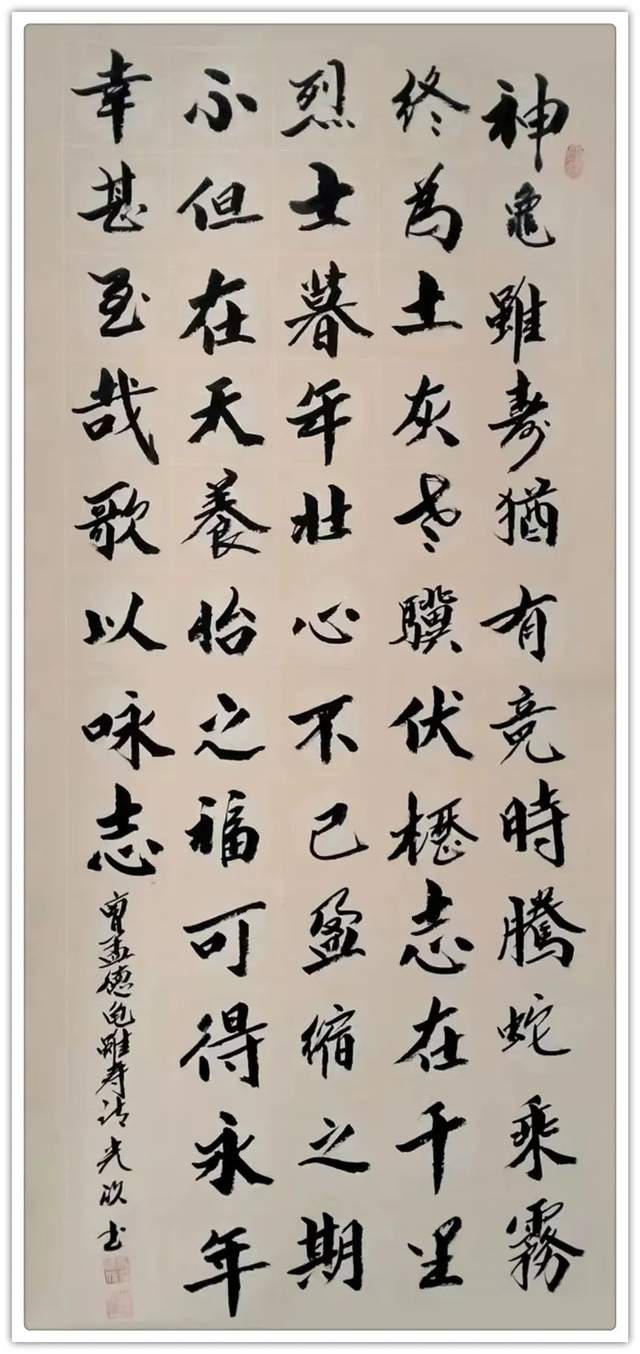 神龜雖壽猶有竟時騰蛇乘霧
終為土灰老驥伏櫪志在千里
烈士暮年壯心不已盈縮之期
不但在天養怡之福可得永年
幸甚至哉歌以咏志
曹孟德龟雖寿诗 光欣书